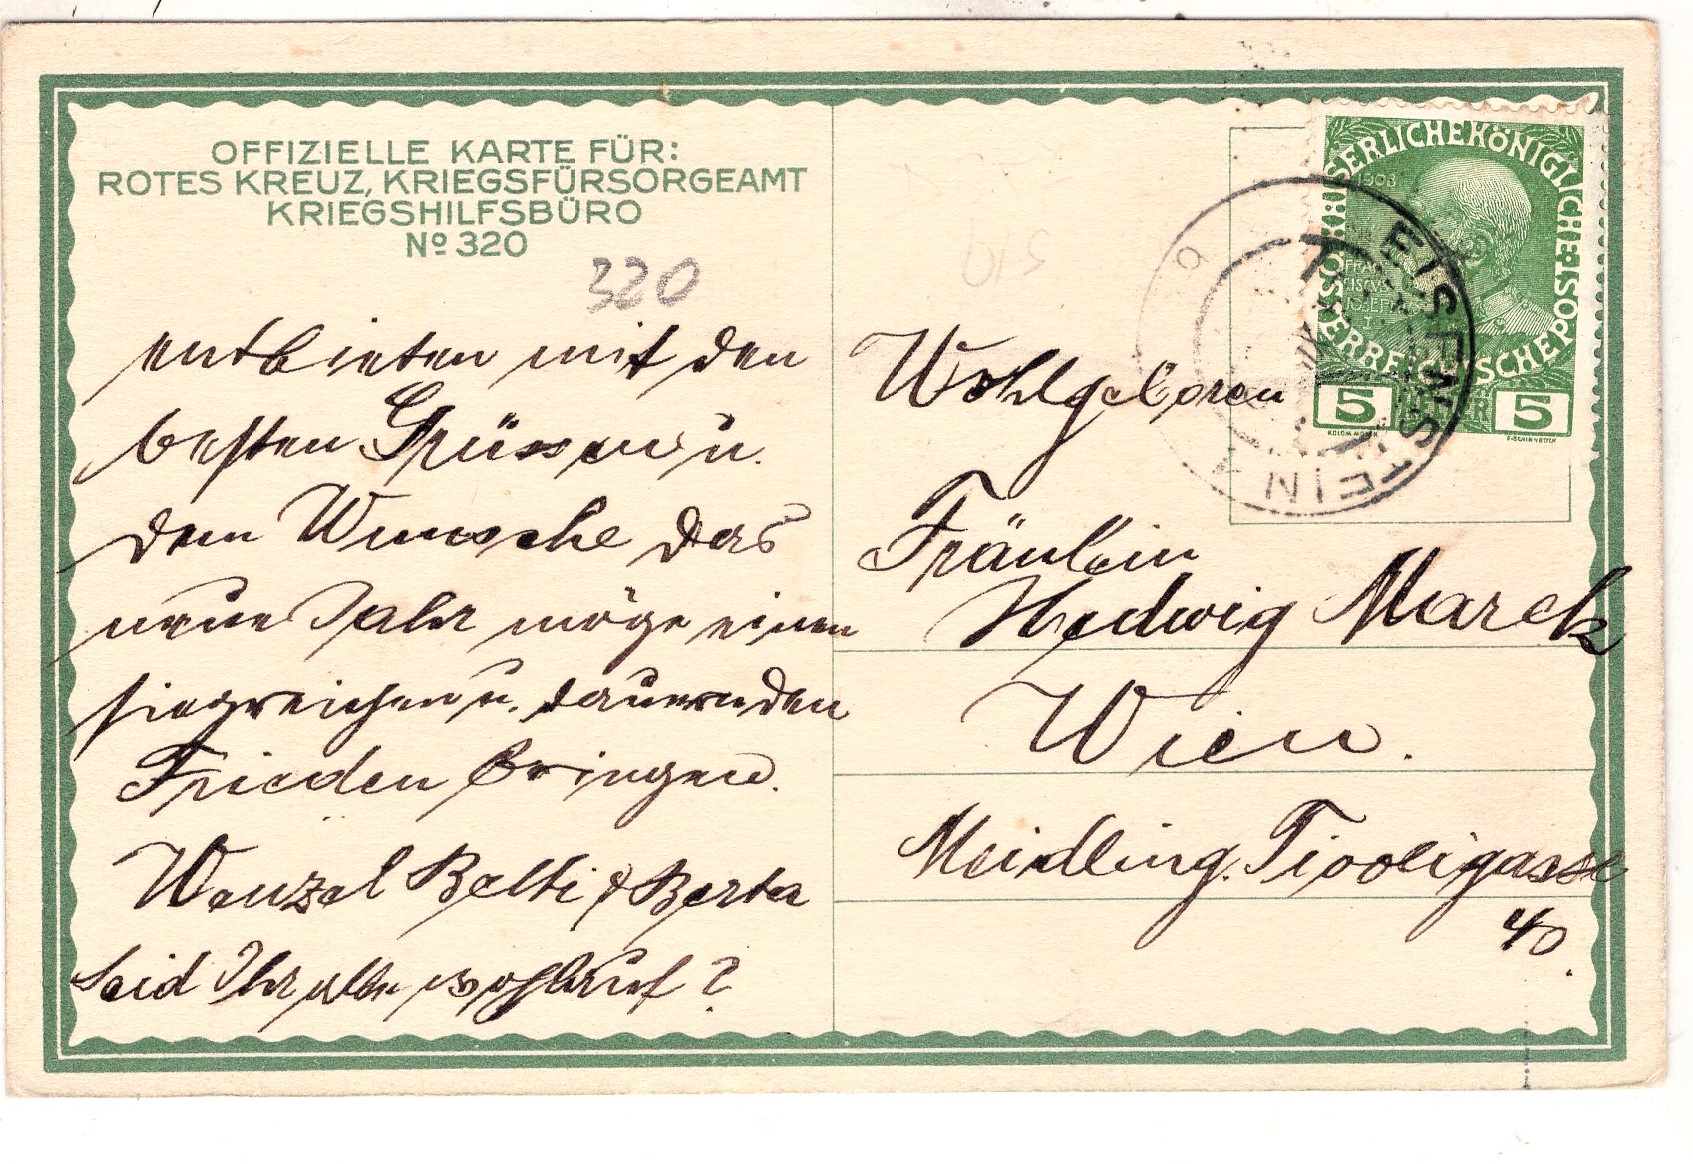 OFFIZIELLE KARTE FÜR:
ROTES KREUZ, KRIEGSFÜRSORGEAMT
KRIEGSHILFSBÜRO
Nº 320
320
entbieten mit den
besten Grüssen u.
dem Wunsche das
neue Jahr möge einen
siegreichen u. dauernden
Frieden bringen.
Wenzel Betti & Berta
Seid Ihr alle wohlauf?
KAISERLICHE KÖNIGLICHE ÖSTERREICHISCHE POST
1908
5 HELLER 5
EISENSTEIN
Wohlgeboren
Fräulein
Hedwig Marek
Wien.
Meidling. Tivoligasse
40.